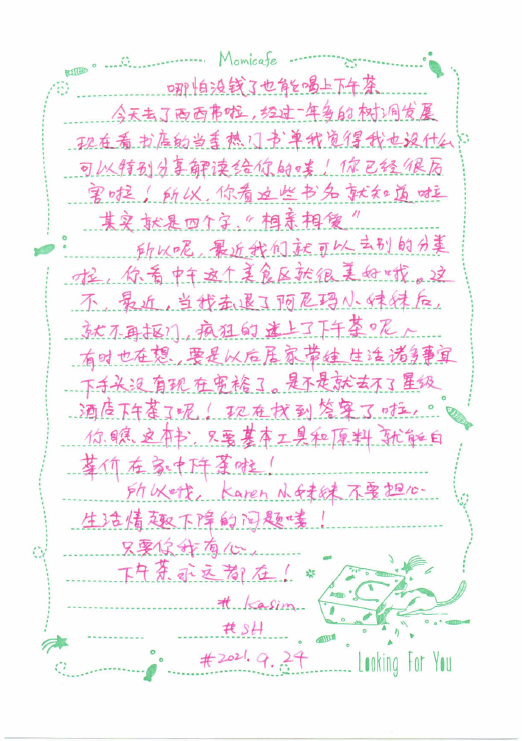 Momicafe
哪怕没钱了也能喝上下午茶
今天去了西西弗啦，经过一年多的树洞发展
现在看书店的当季热门书单我觉得我也没什么
可以特别分享解读给你的喽！你已经很厉
害啦！所以，你看这些书名就知道啦
其实就是四个字，“相亲相爱”
所以呢，最近我们就可以去别的分类
啦，你看中午这个美食区就很美好哦。这
不，最近，当我去退了阿尼玛小妹妹后，
就不再抠门，疯狂的迷上了下午茶呢～
有时也在想，要是以后居家带娃生活诸多事宜
下手头没有现在宽裕了。是不是就去不了星级
酒店下午茶了呢！现在找到答案了啦，
你瞧这本书，只要基本工具和原料就能白
菜价在家中下午茶啦！
所以哦，Karen小妹妹不要担心
生活情趣下降的问题喽！
只要你我有心，
下午茶永远都在！
# Kasim
#SH
#2021.9.24
Looking For You